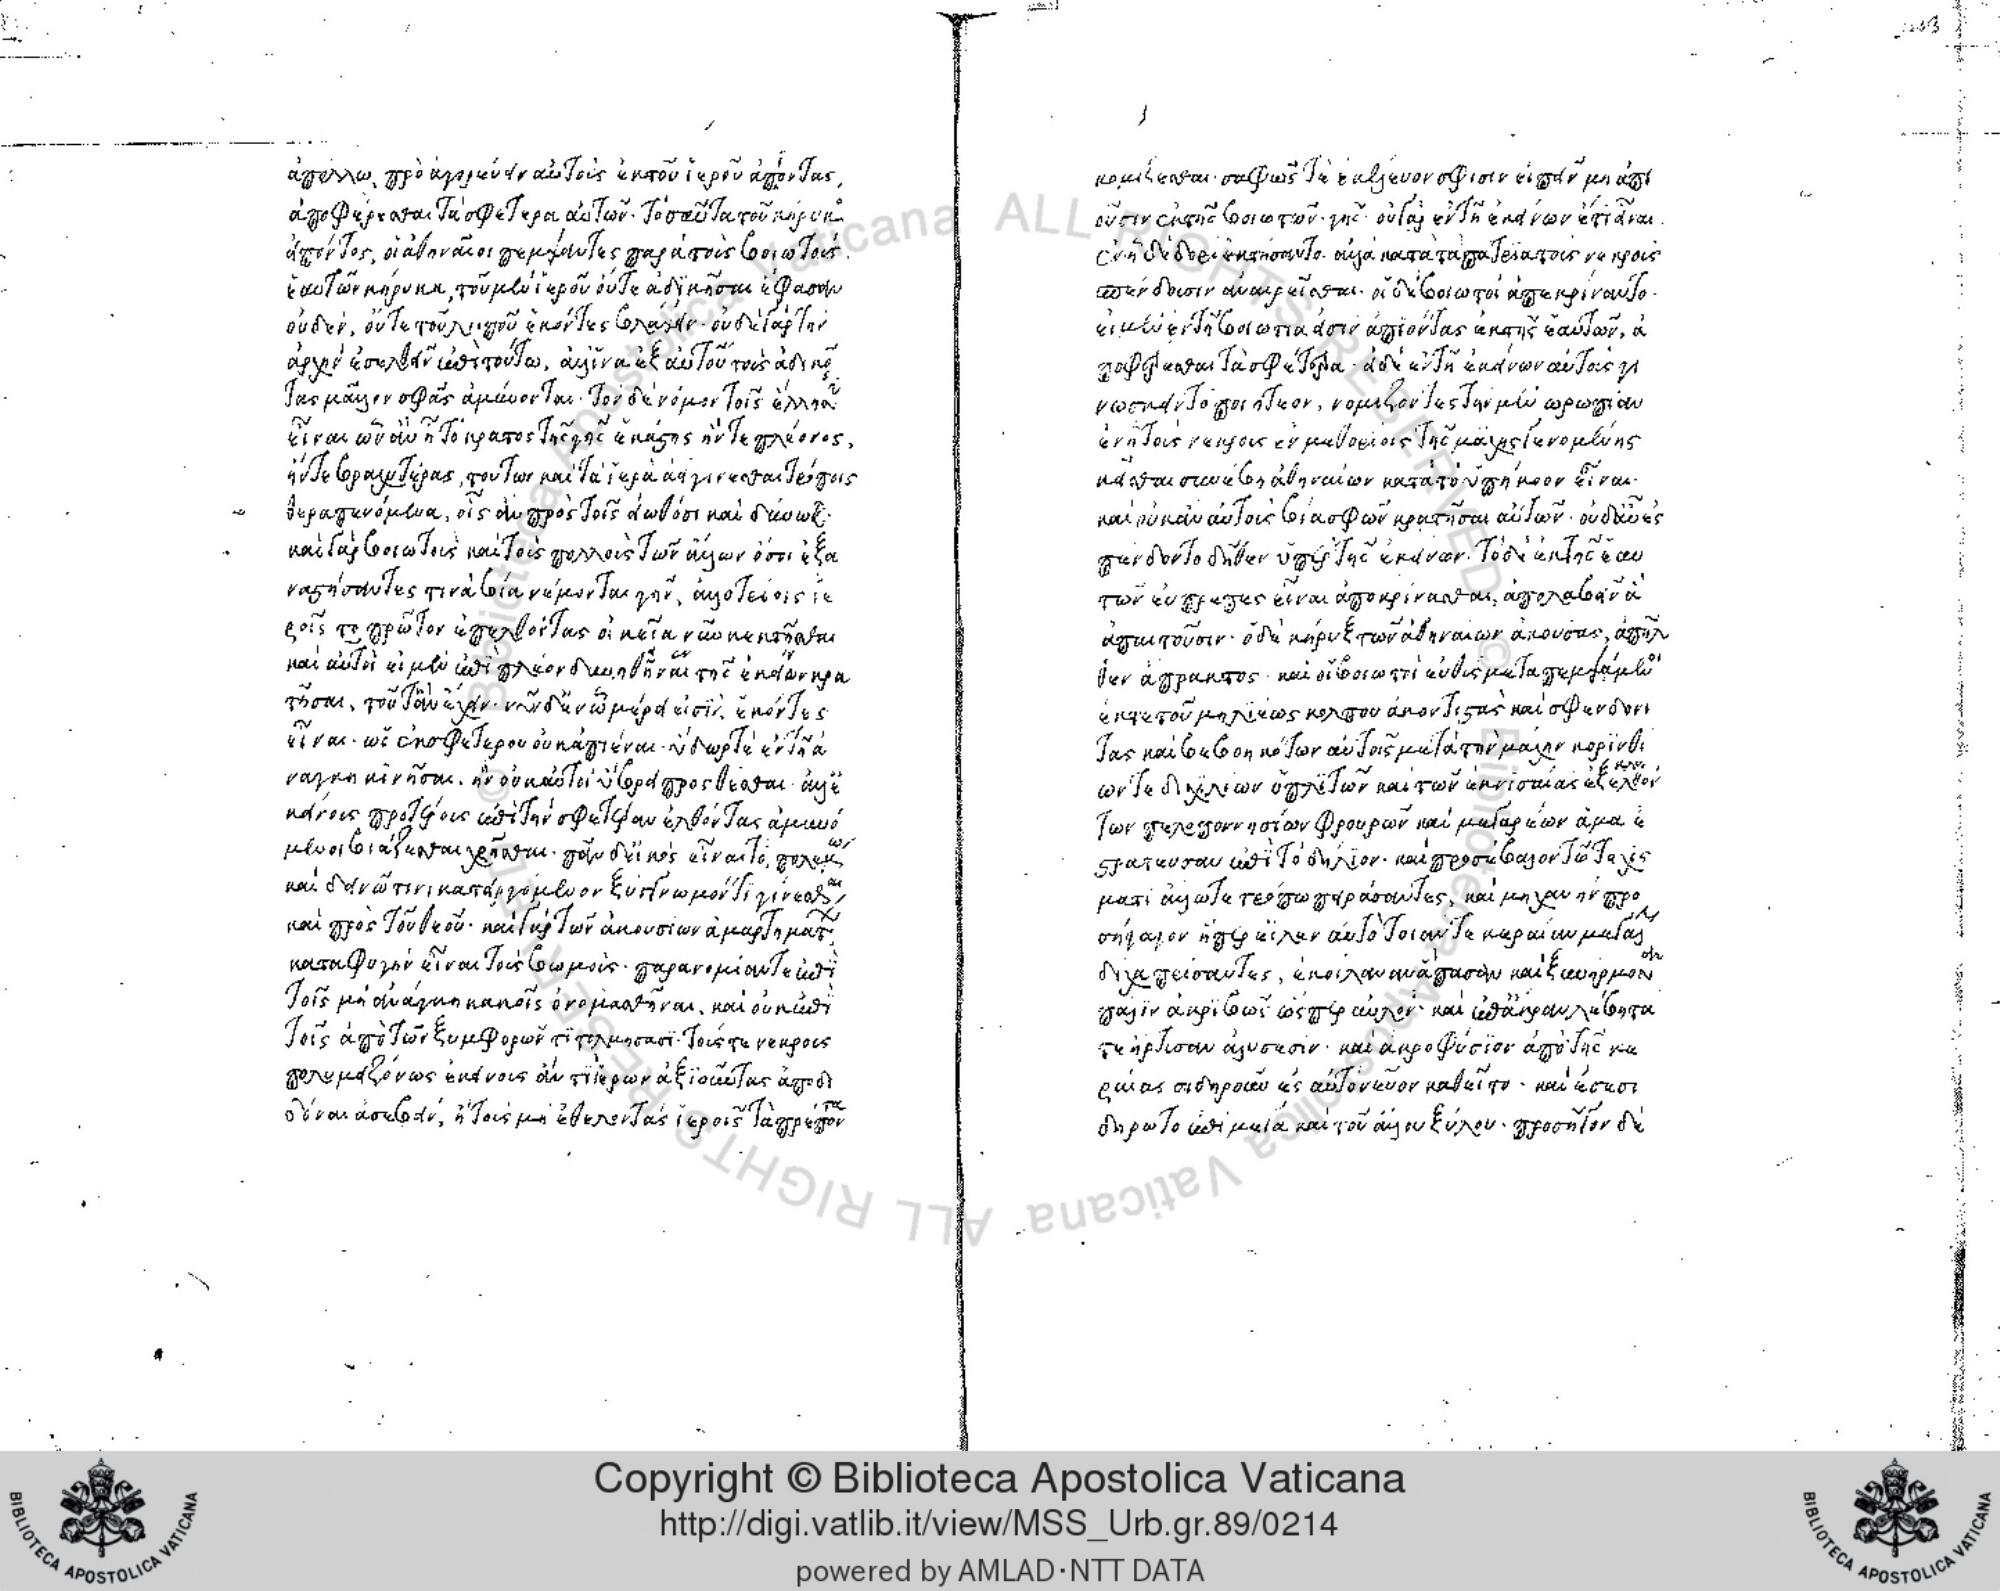 ἀπόλλω, προαγορεύειν αὐτοῖς ἐκ τοῦ ἱεροῦ ἀπιόντας,
ἀποφέρεσθαι τὰ σφέτερα αὐτῶν· τοσαῦτα τοῦ κήρυκος
εἰπόντος, οἱ ἀθηναῖοι πέμψαντες παρὰ τοὺς βοιωτοὺς
ἑαυτῶν κήρυκα, τοῦ μὲν ἱεροῦ οὔτε ἀδικῆσαι ἔφασαν
οὐδὲν, οὔτε τοῦ λοιποῦ ἑκόντες βλάψειν· οὐδὲ γὰρ τὴν
ἀρχὴν ἐσελθεῖν ἐπὶ τούτω, ἀλλ' ἵνα ἐξ αὐτοῦ τοὺς ἀδικοῦν
τας μᾶλλον σφᾶς ἀμύνονται· τὸν δὲ νόμον τοῖς ἕλλησιν
εἶναι ὧν ἂν ἦ τὸ κράτος τῆς γῆς ἑκάστης ἤν τε πλέονος,
ἤν τε βραχυτέρας, τούτων καὶ τὰ ἱερὰ ἀεὶ γίνεσθαι τρόποις
θεραπευόμενα, οἷς ἂν πρὸς τοῖς εἰωθόσι καὶ δύνωνται·
καὶ γὰρ βοιωτοὺς καὶ τοὺς πολλοὺς τῶν ἄλλων ὅσοι ἐξα
ναστήσαντες τινὰ βία νέμονται γῆν, ἀλλοτρίοις ἱε
ροῖς τὸ πρῶτον ἐπελθόντας οἰκεῖα νῦν κεκτῆσθαι
καὶ αὐτοὶ εἰ μὲν ἐπὶ πλέον δυνηθῆναι τῆς ἐκείνων κρα
τῆσαι, τοῦτ' ἂν ἔχειν· νῦν δὲ ἐν ὧ μέρει εἰσὶν, ἑκόντες
εἶναι· ὡς ἐκ σφετέρου οὐκ ἀπιέναι· ὕδωρ τὲ ἐν τῆ ἀ
νάγκη κινῆσαι. ἣν οὐκ αὐτοὶ ὕβρει προσθέσθαι· ἀλλ' ἐ
κείνους προτέρους ἐπὶ τὴν σφετέραν ἐλθόντας ἀμυνό
μενοι βιάζεσθαι χρῆσθαι· πᾶν δ' εἰκὸς εἶναι τὸ, πολέμω
καὶ δεινῶ τινι κατειργόμενον ξύγγνωμόν τι γίνεσθαι
καὶ πρὸς τοῦ θεοῦ· καὶ γὰρ τῶν ἀκουσίων ἁμαρτημάτων
καταφυγὴν εἶναι τοὺς βωμούς· παρανομίαν τε ἐπὶ
τοῖς μὴ ἀνάγκη κακοῖς ὀνομασθῆναι, καὶ οὐκ ἐπὶ
τοῖς ἀπὸ τῶν ξυμφορῶν τι τολμήσασι· τούς τε νεκροὺς
πολὺ μειζόνως ἐκείνους ἀντὶ ἱερῶν ἀξιοῦντας ἀποδι
δόναι ἀσεβεῖν, ἢ τοὺς μὴ ἐθέλοντας ἱεροῖς τὰ πρέποντα
κομίζεσθαι· σαφῶς τὲ ἐκέλευον σφίσιν εἰπεῖν μὴ ἀπι
οῦσιν ἐκ τῆς βοιωτῶν γῆς· οὐ γὰρ ἐν τῆ ἐκείνων ἔτι εἶναι·
ἐν ἧ δὲ δορὶ ἐκτήσαντο· ἀλλὰ κατὰ τὰ πάτρια τοὺς νεκροὺς
σπένδουσιν ἀναιρεῖσθαι· οἱ δὲ βοιωτοὶ ἀπεκρίναντο·
εἰ μὲν ἐν τῆ βοιωτία εἰσιν ἀπιόντας ἐκ τῆς ἑαυτῶν, ἀ
ποφέρεσθαι τὰ σφέτερα· εἰ δὲ ἐν τῆ ἐκείνων αὐτοὺς γι
νώσκειν τὸ ποιητέον, νομίζοντες τὴν μὲν ὠρωπίαν
ἐν ἧ τοὺς νεκροὺς ἐν μεθορίοις τῆς μάχης γενομένης
κεῖσθαι συνέβη ἀθηναίων κατὰ τὸ ὑπήκοον εἶναι·
καὶ οὐκ ἂν αὐτοὺς βία σφῶν κρατῆσαι αὐτῶν· οὐδ' αὖ ἐς
πένδοντο δῆθεν ὑπὲρ τῆς ἐκείνων· τὸ δὲ ἐκ τῆς ἑαυ
τῶν εὐπρεπὲς εἶναι ἀποκρίνασθαι, ἀπολαβεῖν ἃ
ἀπαιτοῦσιν· ὁ δὲ κήρυξ τῶν ἀθηναίων ἀκούσας, ἀπῆλ
θεν ἄπρακτος· καὶ οἱ βοιωτοὶ εὐθὺς μεταπεμψάμενοι
ἔκ τε τοῦ μηλιέως κόλπου ἀκοντιστὰς καὶ σφενδονή
τας καὶ βεβοηκότων αὐτοῖς μετὰ τὴν μάχην κορινθί
ων τε δισχιλίων ὁπλιτῶν καὶ τῶν ἐκ νισαίας ἐξεληλυθό
των πελοποννησίων φρουρῶν καὶ μεγαρέων ἅμα ἐ
στράτευσαν ἐπὶ τὸ δήλιον· καὶ προσέβαλον τῶ τειχίσ
ματι ἄλλω τε τρόπω πειράσαντες, καὶ μηχανὴν προ
σήγαγον ἥπερ εἷλεν αὐτὸ τοιάνδε κεραίαν μεγάλην
δίχα πρίσαντες, ἐκοίλαναν ἅπασαν καὶ ξυνήρμοσαν
πάλιν ἀκριβῶς ὥσπερ αὐλόν· καὶ ἐπ' ἄκραν λέβητα
τε ἤρτησαν ἁλύσεσιν· καὶ ἀκροφύσιον ἀπὸ τῆς κε
ραίας σιδηροῦν ἐς αὐτὸν νεῦον καθεῖτο· καὶ ἐσεσι
δήρωτο ἐπὶ μέγα καὶ τοῦ ἄλλου ξύλου· προσῆγον δὲ
© Biblioteca Apostolica Vaticana ALL RIGHTS RESERVED
© Biblioteca Apostolica Vaticana ALL RIGHTS RESERVED
BIBLIOTECA APOSTOLICA VATICANA
Copyright © Biblioteca Apostolica Vaticana
http://digi.vatlib.it/view/MSS_Urb.gr.89/0214
powered by AMLAD·NTT DATA
BIBLIOTECA APOSTOLICA VATICANA